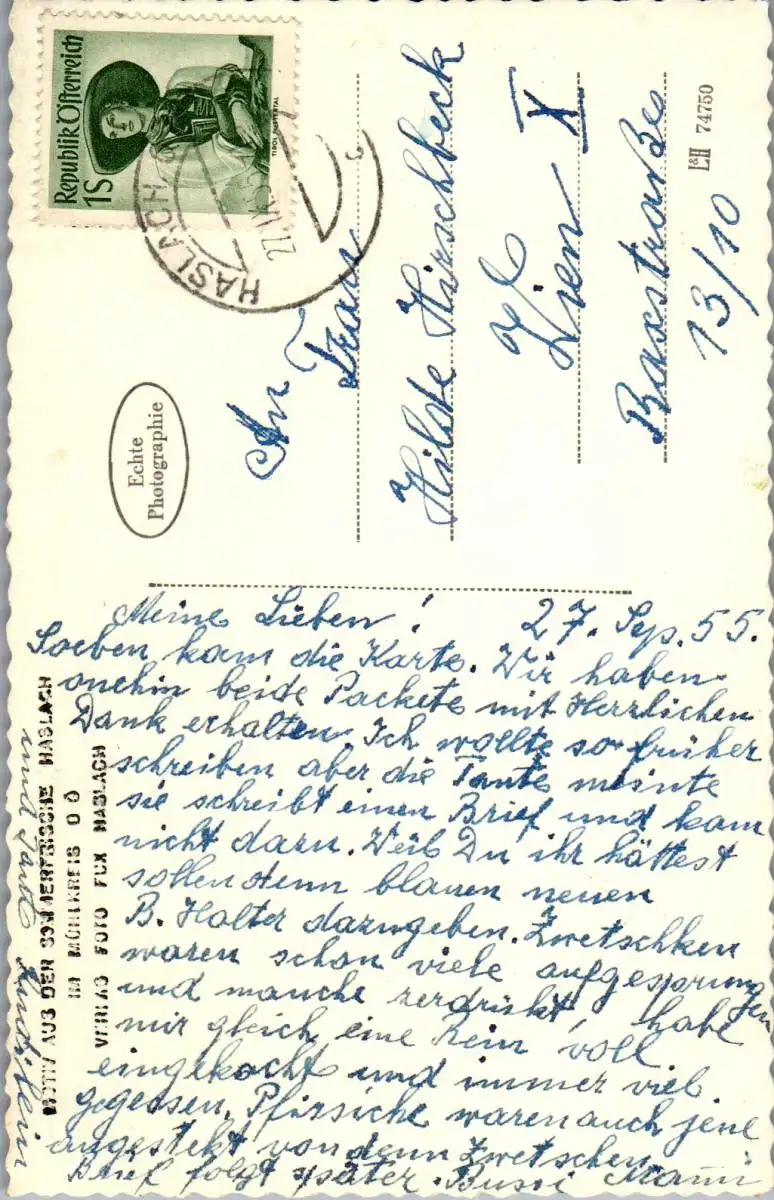 Republik Österreich
1S
TIROL, PUSTERTAL
HASLACH
27. IX. 55
Echte
Photographie
An
Frau
Hilde Hirschbeck
Wien X
Raxstraße
13/10
L&H 74750
Meine Lieben! 27. Sep. 55.
Soeben kam die Karte. Wir haben
onehin beide Packete mit Herrlichen
Dank erhalten. Ich wollte so früher
schreiben aber die Tante meinte
sie schreibt einen Brief und kam
nicht dazu. Weil Du ihr hättest
sollen denn blauen neuen
B. Halter dazugeben. Zwetschken
waren schon viele aufgesprungen
und manche zerdrükt, habe
mir gleich eine Rein voll
eingekocht und immer viel
gegessen. Pfirsiche waren auch jene
angestekt von denn Zwetschen.
Brief folgt später. Bussi Mami
und Tante
MOTIV AUS DER SOMMERFRISCHE HASLACH
IM MÜHLKREIS O Ö
VERLAG FOTO FUX HASLACH